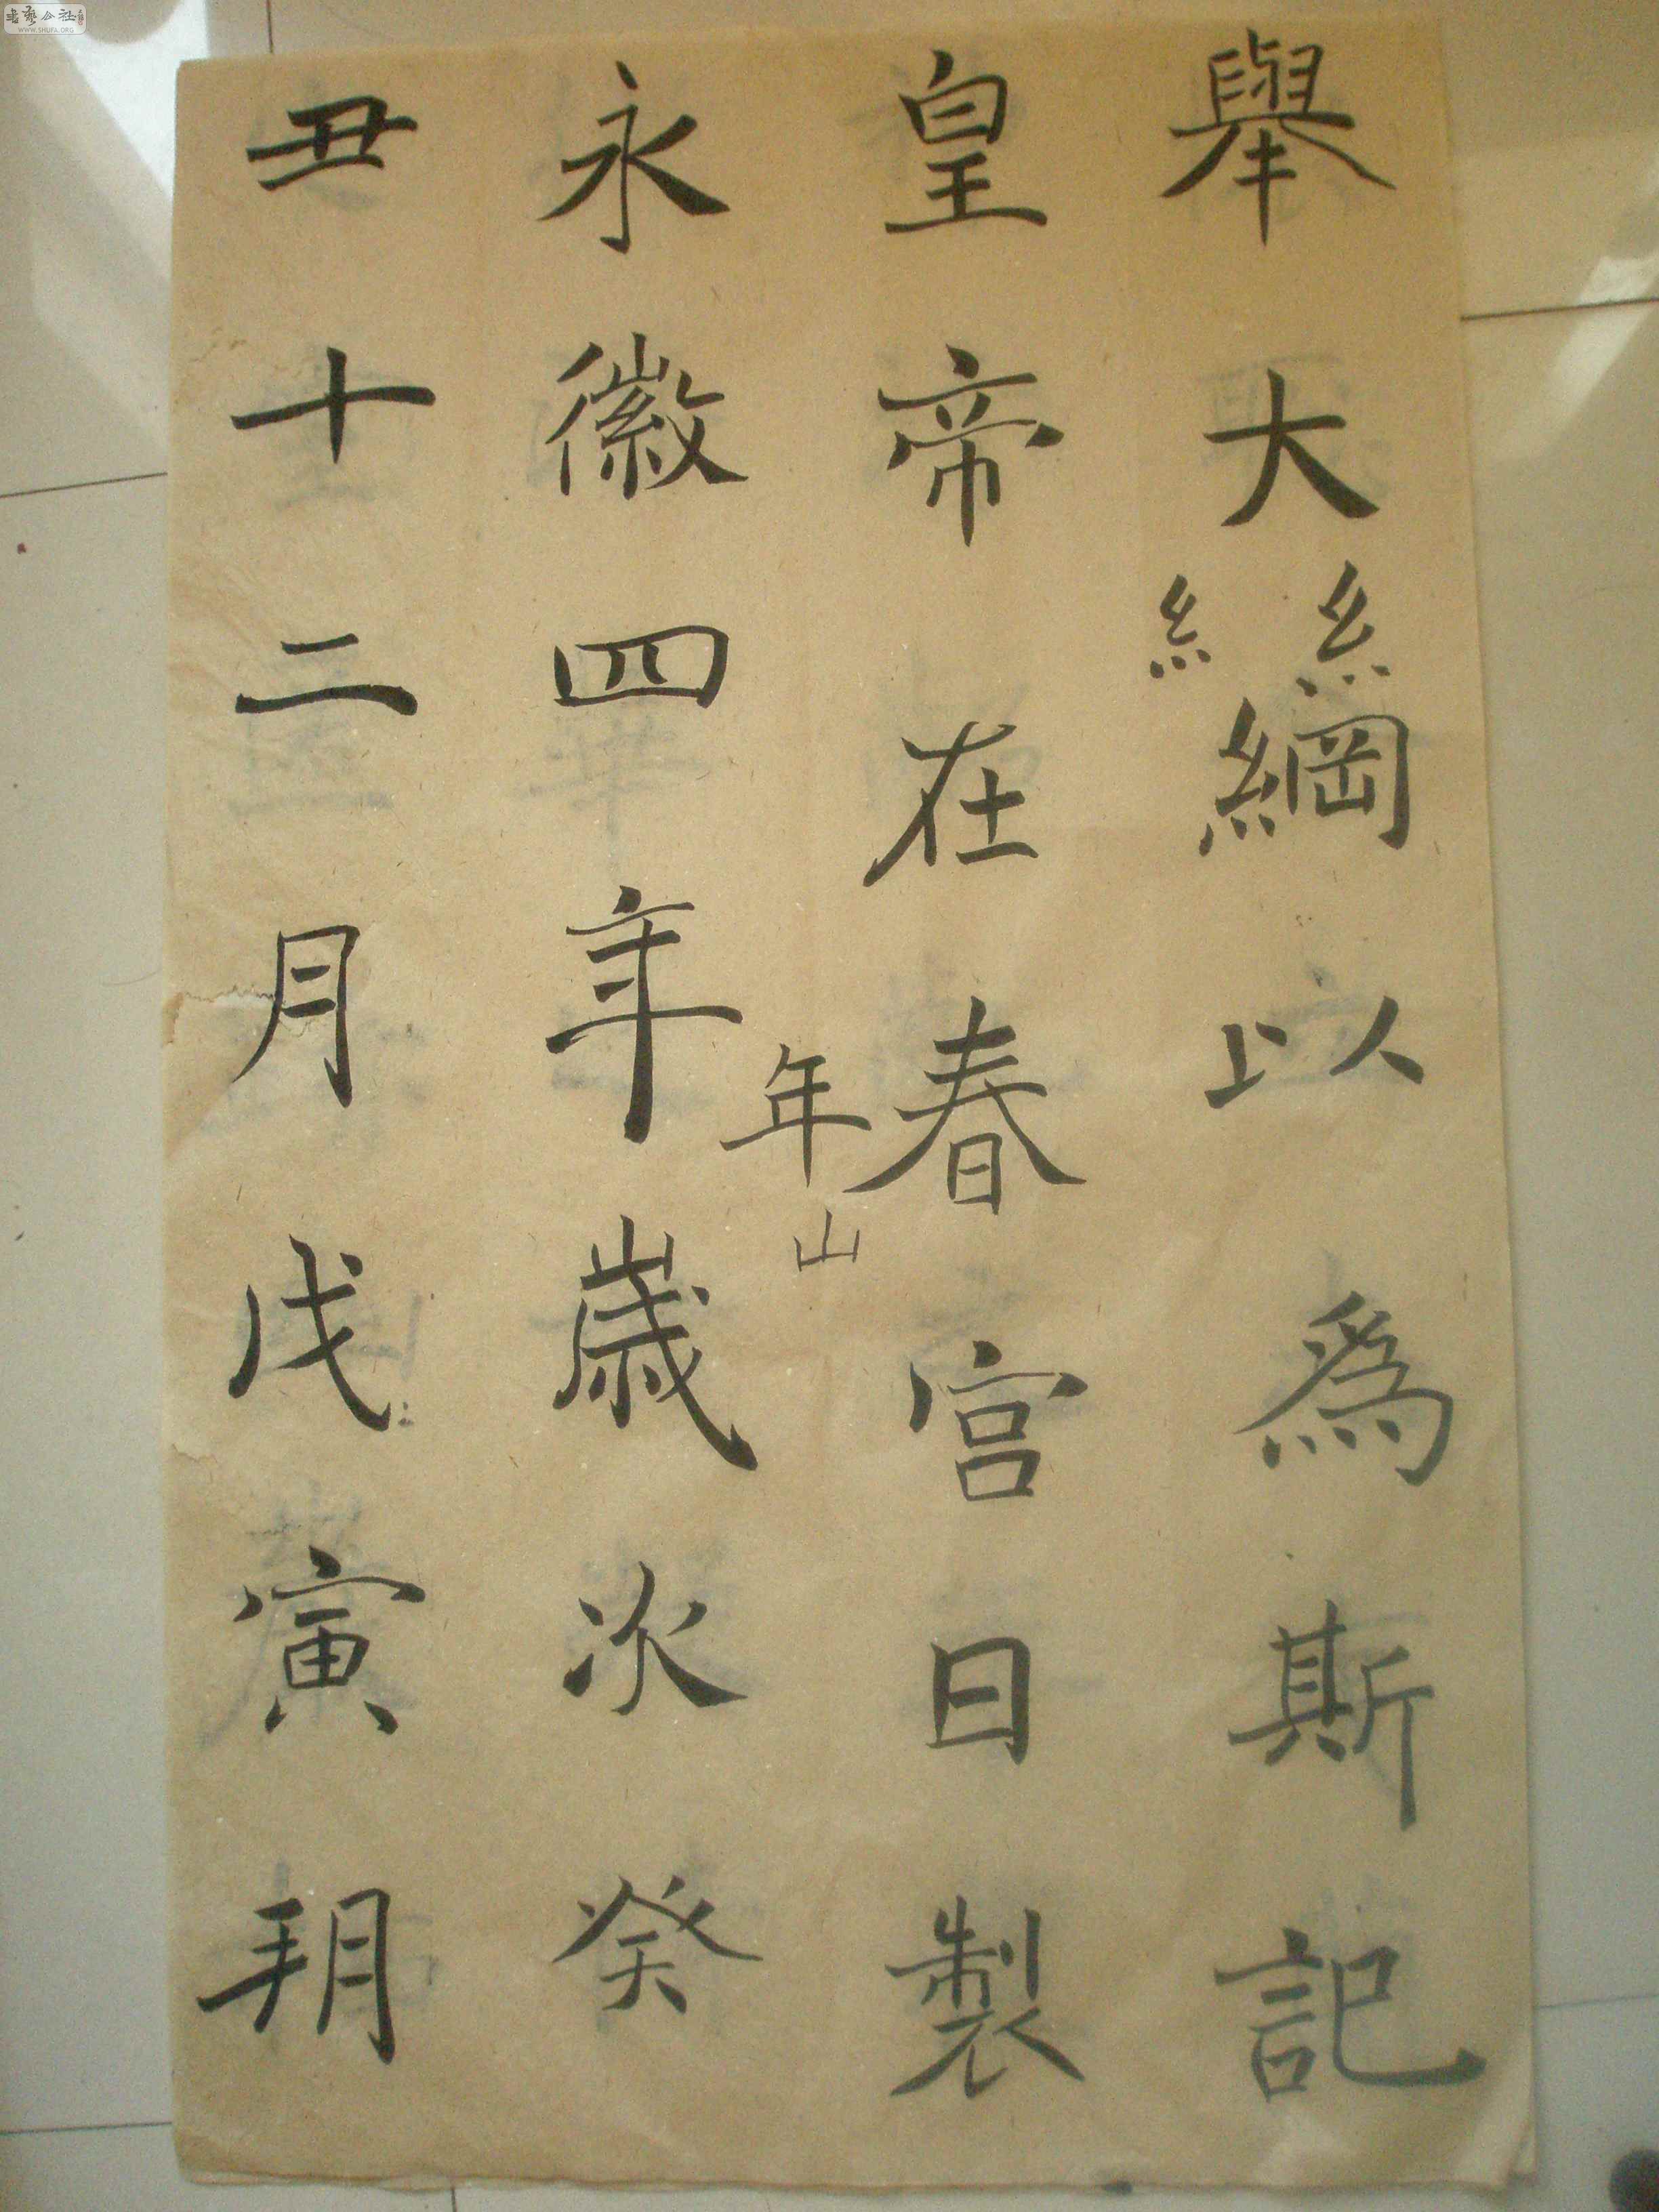 舉大綱以爲斯記
糹糹
皇帝在春宮日製
年山
永徽四年歲次癸
丑十二月戊寅朔
書藝公社
WWW.SHUFA.ORG